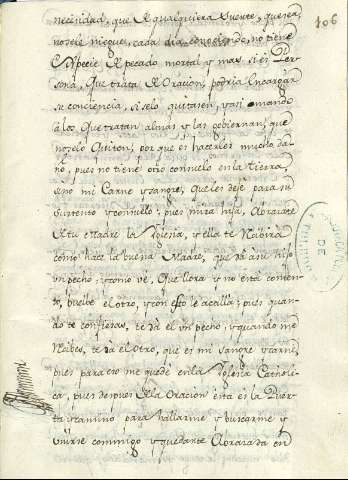 106
necesidad, que de qualquiera suerte, que sea,
cada dia, no tiene
Especie de pecado mortal y mas si es Per-
sona, que trata de Oracion, podria encargar
su conciencia, si se le quitasen, y asi mando
a los que tratan almas y las gobiernan, que
no se lo quiten, por que es hacerles mucho da-
ño, pues no tiene otro consuelo en la tierra,
sino mi Carne y sangre, que les deje para su
sustento y consuelo; pues mira hija, Abrazate
de tu Madre la Yglesia, y ella te
como hace la buena Madre, que da a su hijo
un pecho, y como vè, que llora y no està conten-
to, buelbe el otro, y con esso le acalla; pues quan-
do te confiesas, te dà el un pecho, y quando me
recibes, te dà el otro, que es mi sangre y carne,
pues para eso me quedè en la Yglesia Catholi-
ca, pues despues de la Oracion esta es la Puer-
ta y camino para hallarme y buscarme y
unirse commigo y quedarte Abrazada en
DE